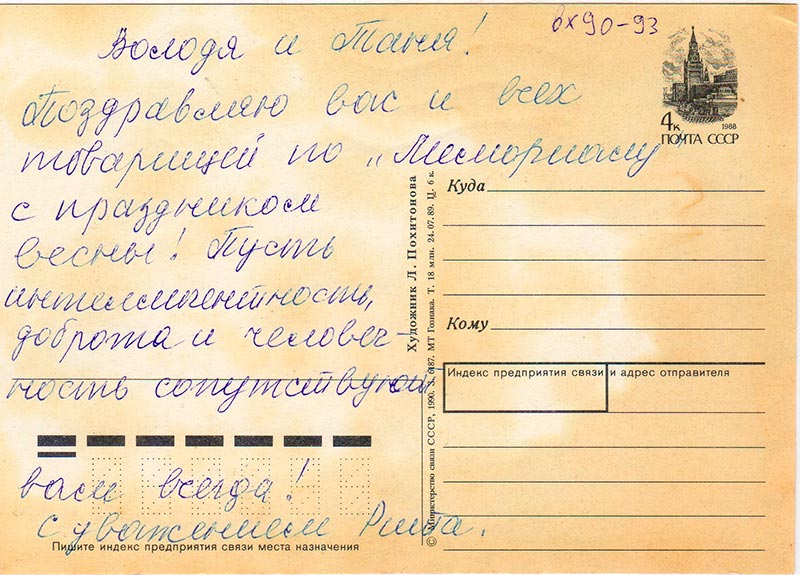 вх90-93
Володя и Таня!
Поздравляю вас и всех
товарищей по „Мемориалу"
с праздником
весны! Пусть
интеллигентность,
доброта и человеч-
ность сопутствуют
вам всегда!
С уважением Рита.
4к
1988
ПОЧТА СССР
Куда
Кому
Индекс предприятия связи и адрес отправителя
Художник Л. Похитонова
© Министерство связи СССР, 1990. З. 6187. МТ Гознака. Т. 18 млн. 24.07.89. Ц. 6 к.
Пишите индекс предприятия связи места назначения